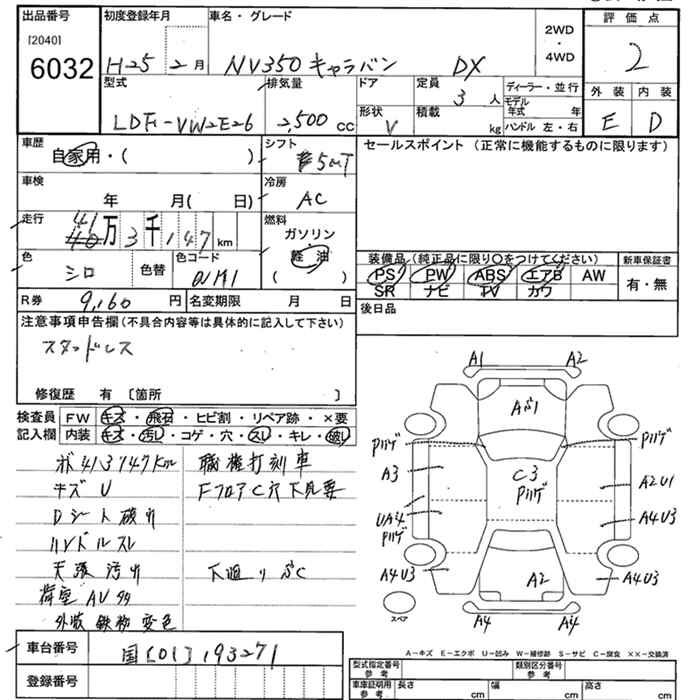 出品番号
[2040]
6032
初度登録年月
H25 2月
車名・グレード
NV350キャラバン DX
2WD
・
4WD
評価点
2
外装 内装
E D
型式
LDF-VW2E26
排気量
2,500 cc
ドア
形状
V
定員
3 人
積載
kg
ディーラー・並行
モデル年式 年
ハンドル 左・右
車歴
自家用・( )
シフト
5MT
車検
年 月( 日)
冷房
AC
走行
41万3千147km
燃料
ガソリン
・
軽油
( )
色
シロ
色替
色コード
セールスポイント (正常に機能するものに限ります)
装備品 (純正品に限り○をつけてください)
PS PW ABS エアB AW
SR ナビ TV カワ
新車保証書
有・無
後日品
R券 9,160 円
名変期限 月 日
注意事項申告欄 (不具合内容等は具体的に記入して下さい)
スタッドレス
修復歴 有 〔箇所 〕
検査員記入欄
FW キズ・飛石・ヒビ割・リペア跡・×要
内装 キズ・汚レ・コゲ・穴・スレ・キレ・破レ
メ 413147km
キズU
Dシート破レ
ハンドルスレ
天張汚レ
荷室AU多
外装鉄粉変色
職権打刻車
FフロアC穴下見要
下廻りぶC
A1 A2
Aぶ1
Pハゲ Pハゲ
A3
C3
Pハゲ
A2U1
UA4
Pハゲ
A4U3
A4U3 A2 A4U3
スペア
A4 A4
A-キズ E-エクボ U-凹み W-補修跡 S-サビ C-腐食 ××-交換済
車台番号
国[01]193271
登録番号
型式指定番号
参考
類別区分番号
参考
車庫証明用
参考
長さ cm
幅 cm
高さ cm